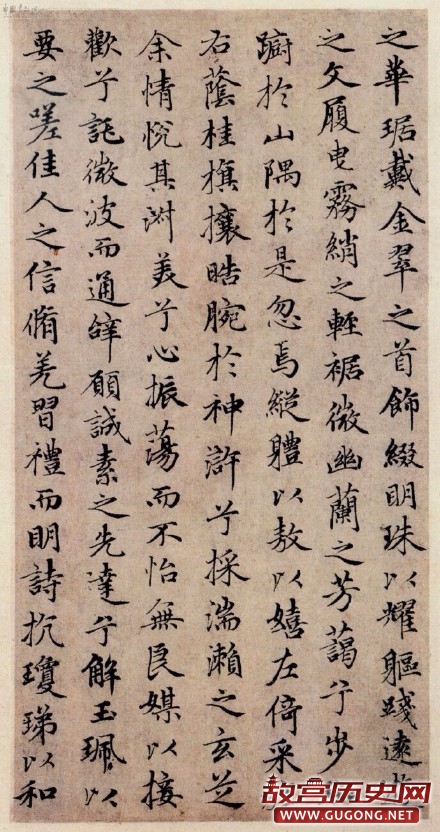 之華琚戴金翠之首飾綴明珠以耀軀踐遠遊
之文履曳霧綃之輕裾微幽蘭之芳藹兮步
蹰於山隅於是忽焉縱體以敖以嬉左倚采
右蔭桂旗攘晧腕於神滸兮採湍瀨之玄芝
余情悅其淑美兮心振蕩而不怡無良媒以接
歡兮託微波而通辭願誠素之先達兮解玉珮以
要之嗟佳人之信脩羌習禮而明詩抗瓊珶以和
故宫历史网
WWW.GUGONG.NET